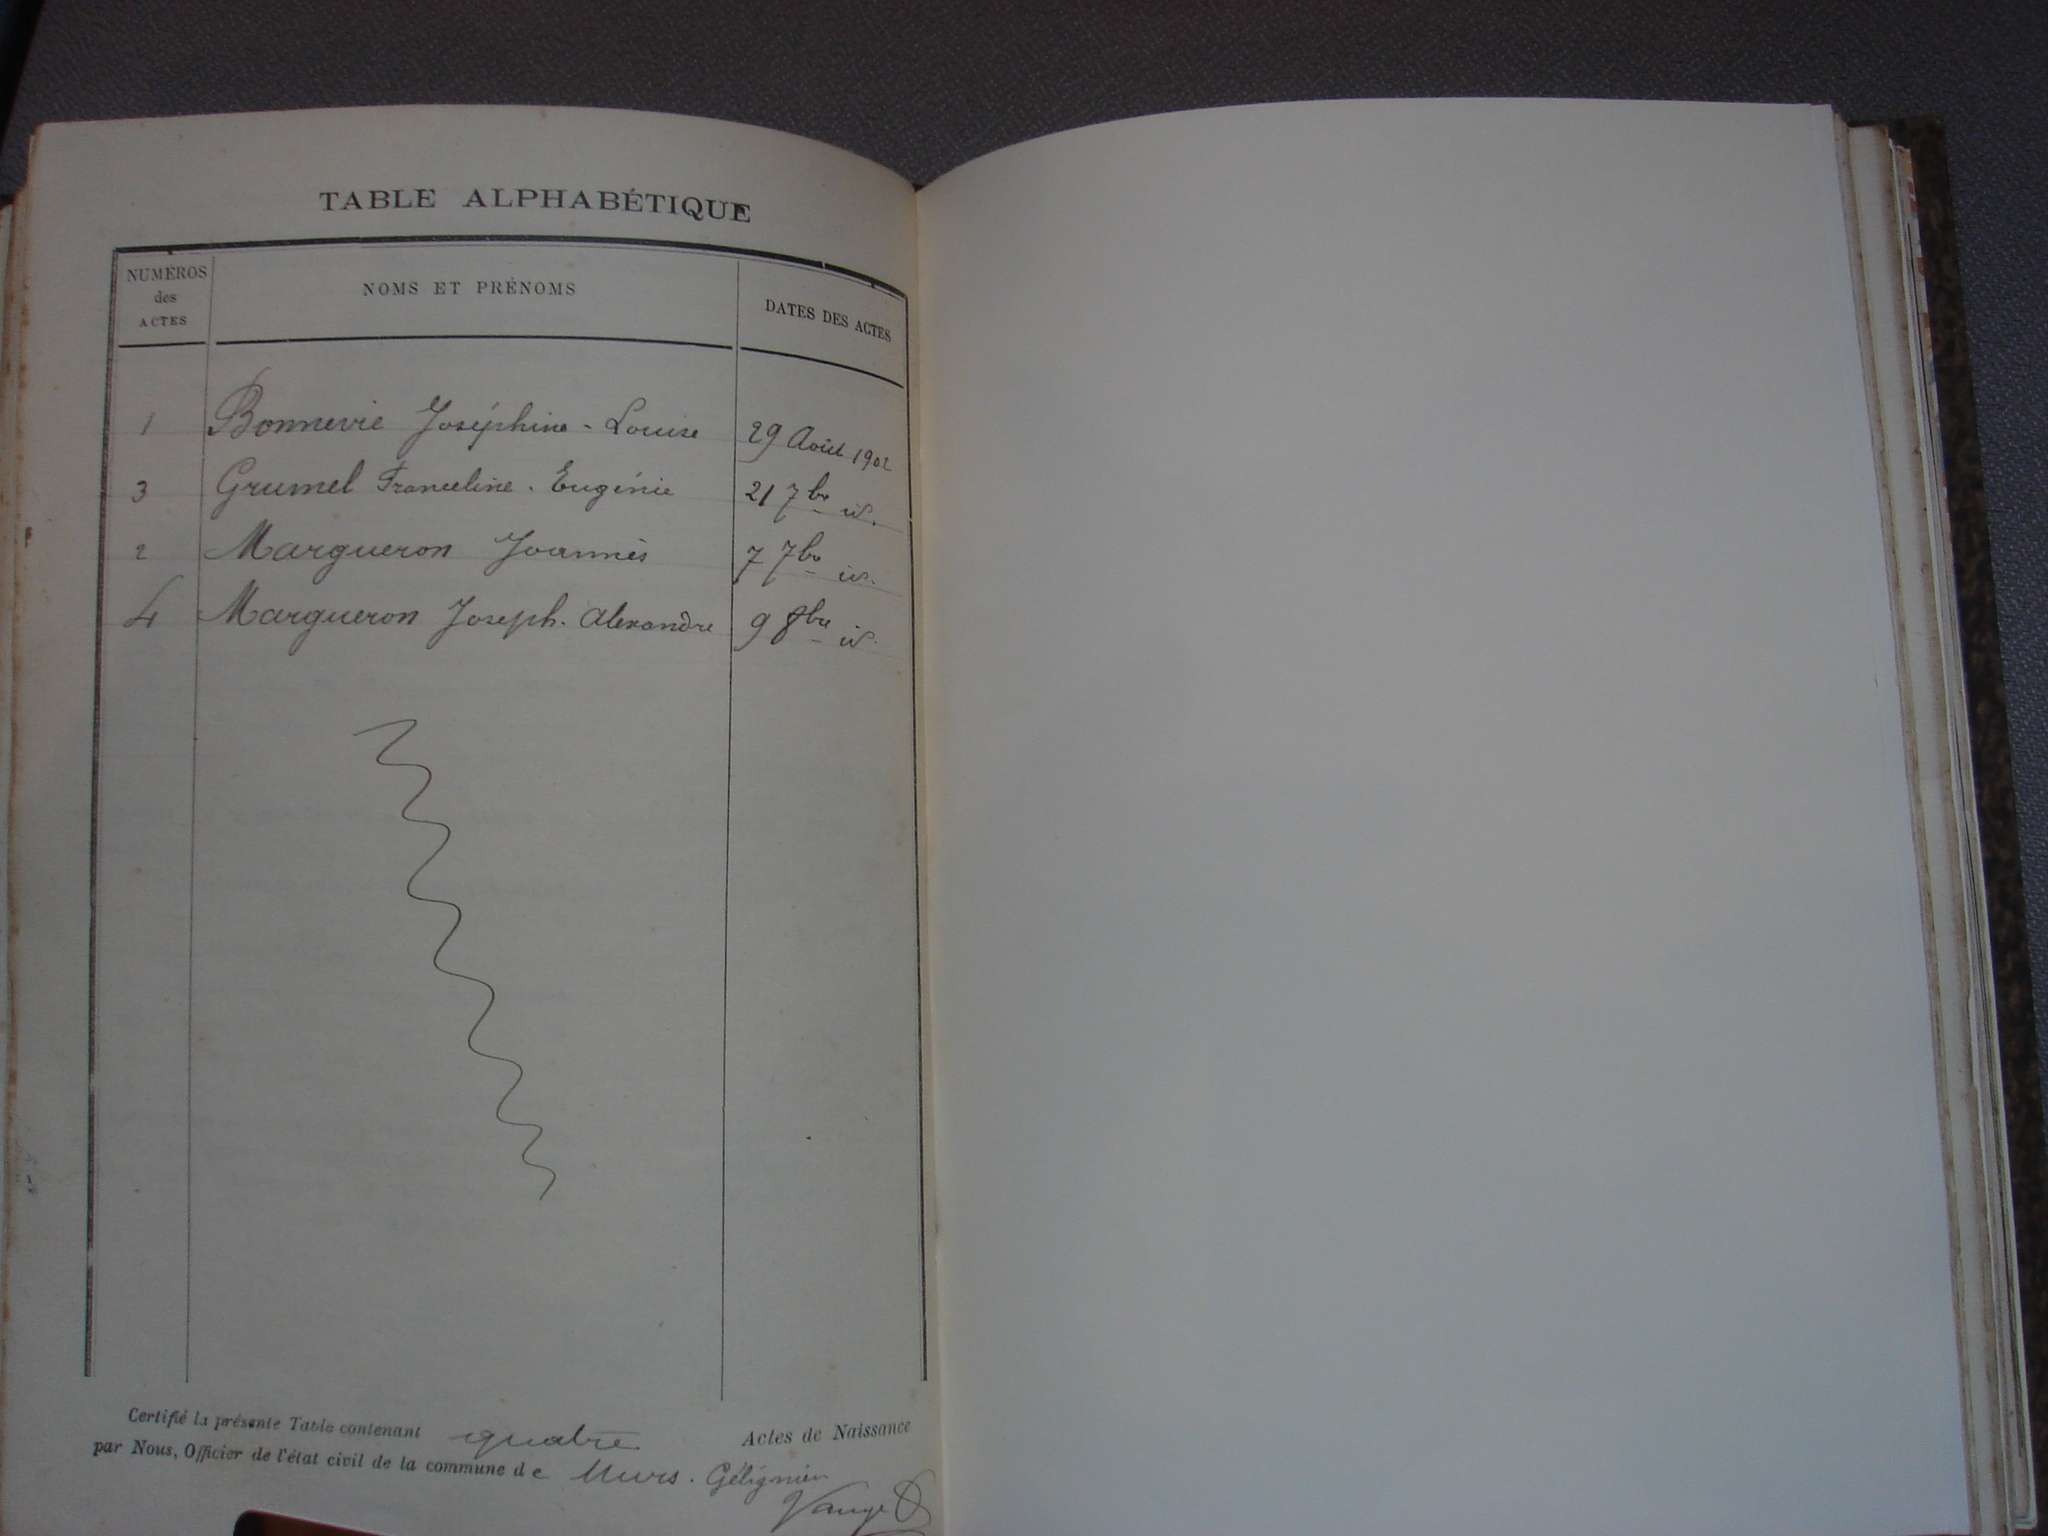 TABLE ALPHABÉTIQUE
NUMÉROS des ACTES NOMS ET PRÉNOMS DATES DES ACTES
1 Bonnevie Joséphine-Louise 29 Août 1902
3 Grumel Franceline-Eugénie 21 7bre id.
2 Margueron Joannès 7 7bre id.
4 Margueron Joseph-Alexandre 9 8bre id.
Certifié la présente Table contenant quatre Actes de Naissance
par Nous, Officier de l'état civil de la commune de Murs-Gélignieu